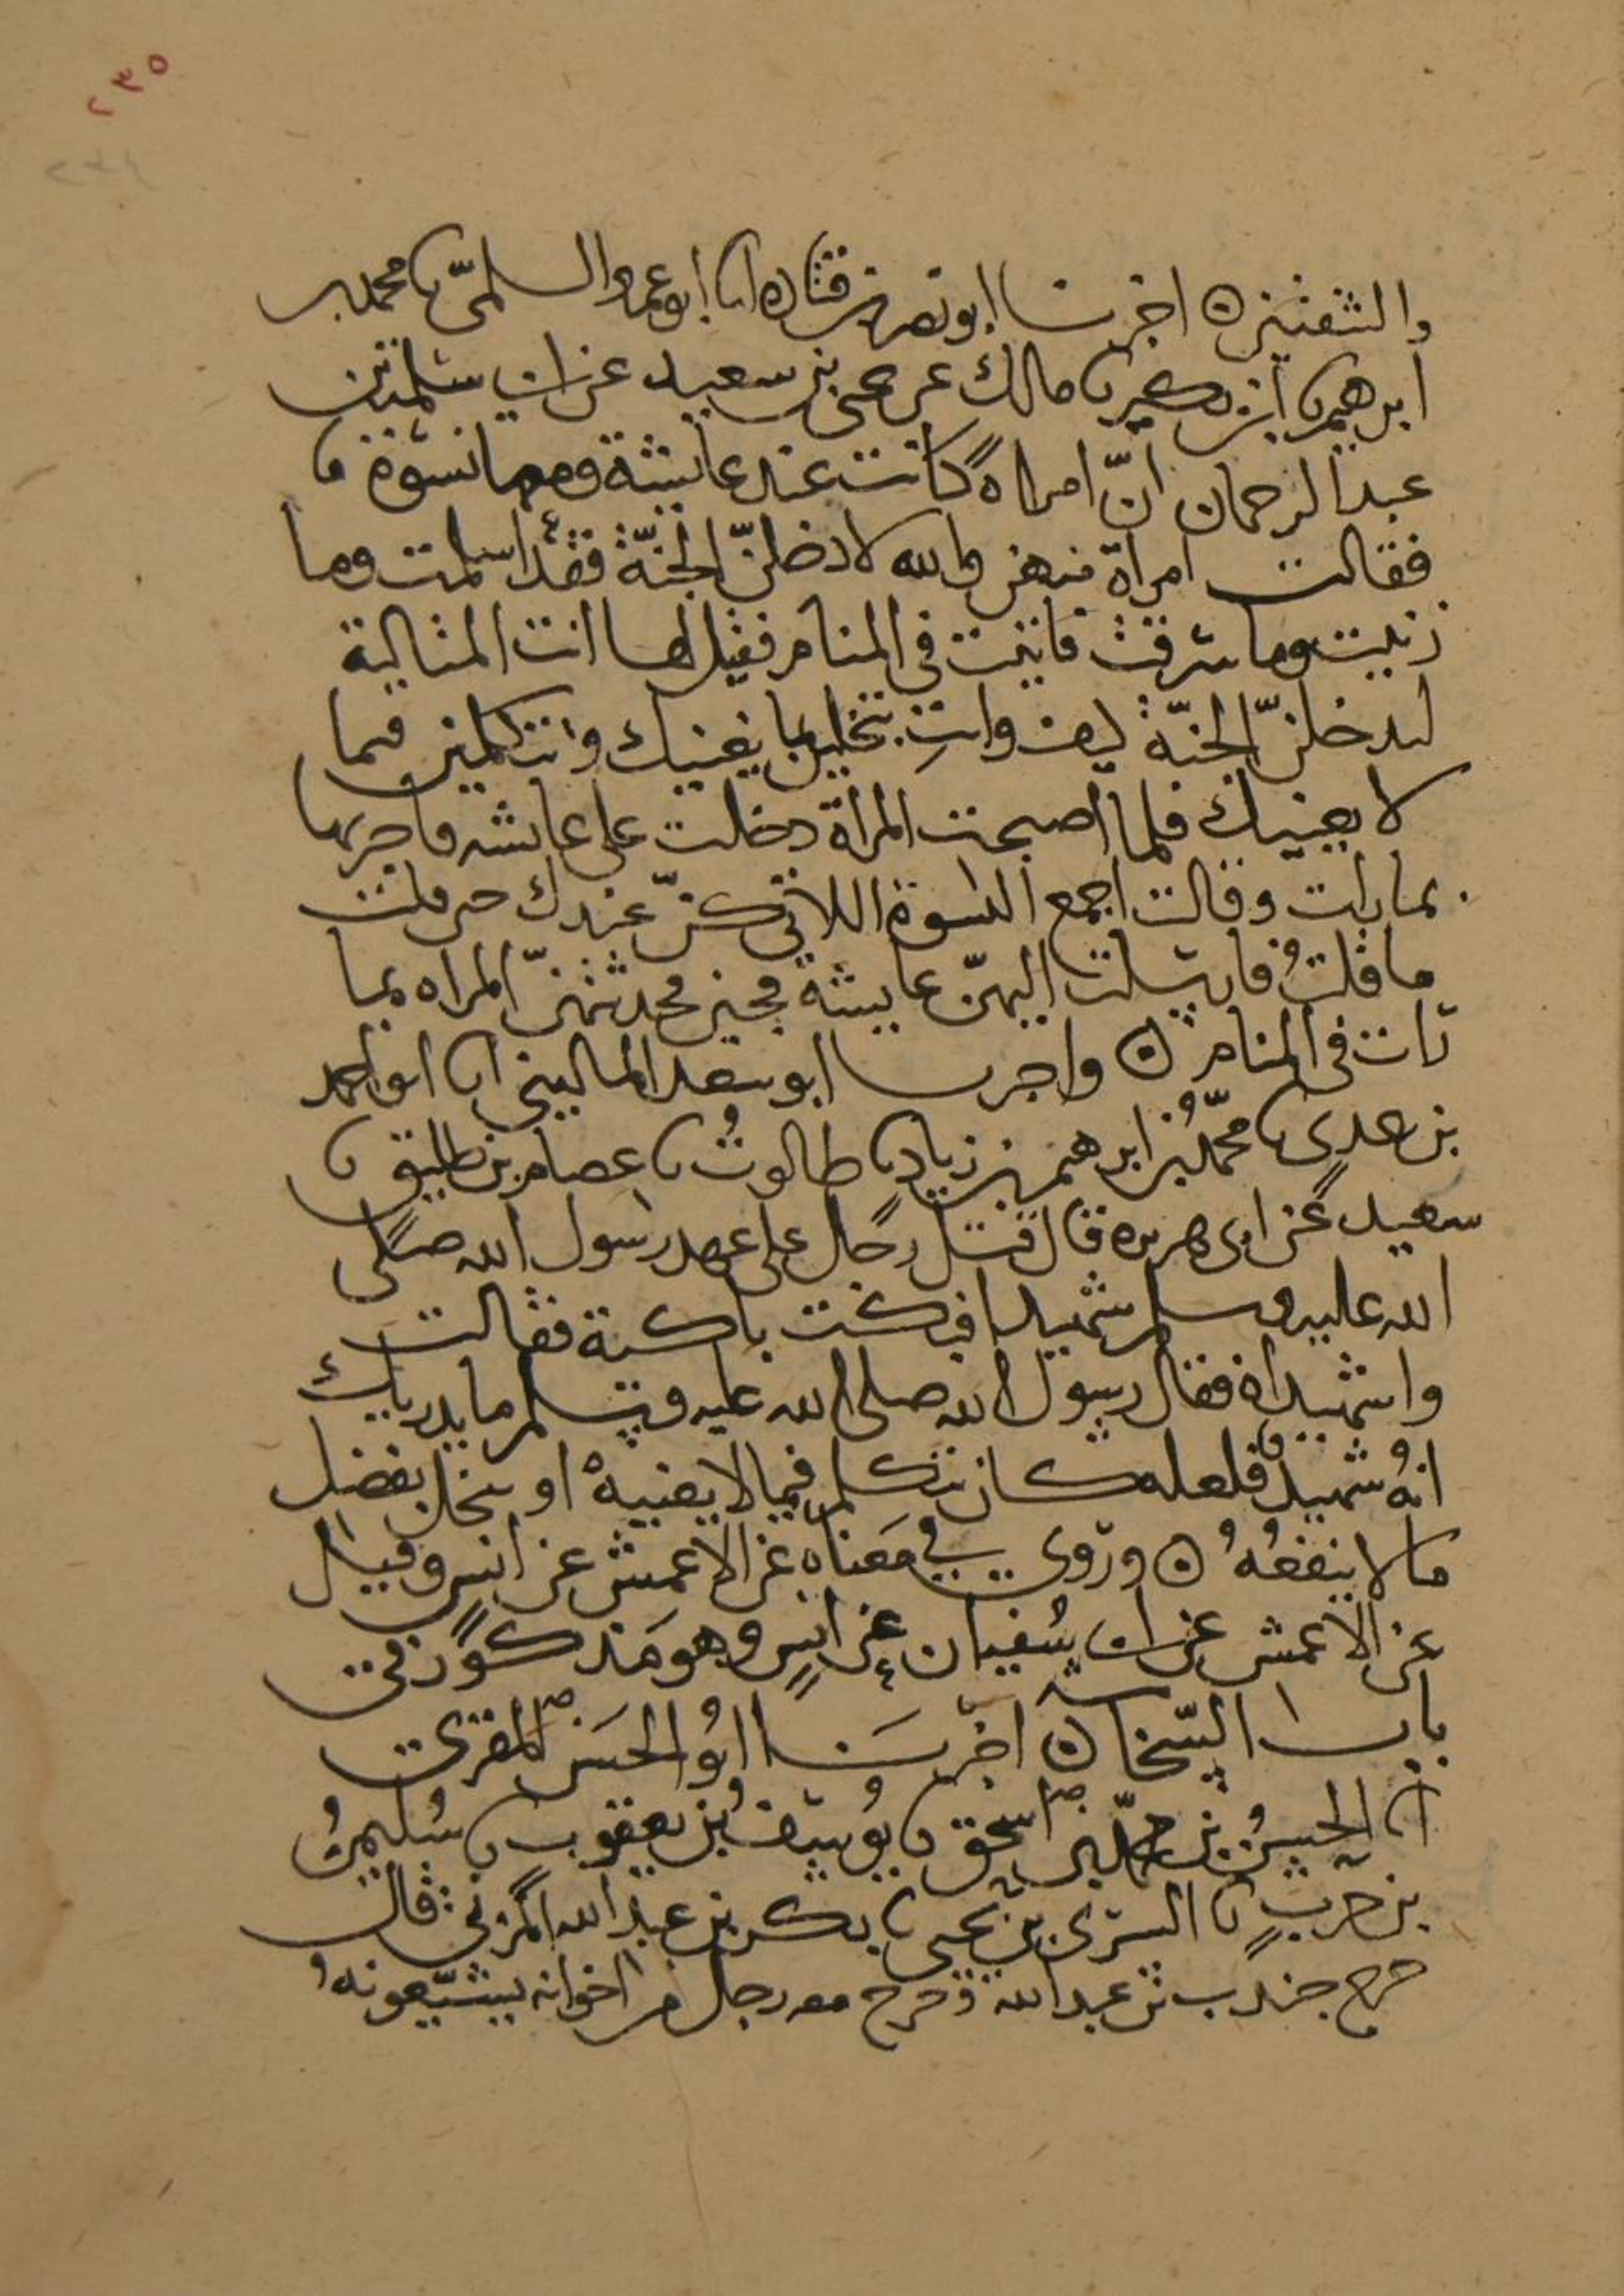 ٢٣٥
٢٣٤
والشفتين ٥ اخبرنا ابو نصر بن قتاده انا ابو عمرو السلمىّ نا محمد بن
ابرهيم نا ابن بكير نا مالك عن يحيى بن سعيد عن ابى سلمة بن
عبد الرحمان انّ امراةً كانت عند عايشة ومعها نسوة
فقالت امراة منهن والله لادخلنّ الجنّة فقد اسلمت وما
زنيت وما سرقت فاتيت فى المنام فقيل لها انت المتالية
لتدخلنّ الجنّة كيف وانتِ تبخلين بما يغنيك وتتكلمين فيما
لا يعنيك فلما اصبحت المراة دخلت على عايشه فاخبرتها
بما رات وقالت اجمعى النسوة اللاتى كنّ عندك حين قلت
ما قلتُ فارسلت اليهنّ عايشة فجين فحدثتهنّ المراه بما
رات فى المنام ٥ واخبرنا ابو سعد المالينى انا ابو احمد
بن عدى نا محمّدُ بن ابرهيم بن زياد نا طالوتُ نا عصام بن طليق نا
سعيد عن ابى هريره قال قتل رجل على عهد رسول الله صلى
الله عليه وسلم شهيدا فبكت باكية فقالت
واشهيداه فقال رسول الله صلى الله عليه وسلم ما يدريك
انهُ شهيدٌ فلعله كان يتكلم فيما لا يعنيهْ او يبخل بفضل
ما لا ينفعُهُ ٥ وروى فى مَعناه عن الاعمش عن انس وقيل
عن الاعمش عن ابى سُفيان عن انسٍ وهو مَذكورٌ فى
باب السّخا ٥ اخبرَنا ابُو الحسَن المقرى
انا الحسنُ بن محمّد بن اسحق نا يوسفُ بن يعقوب نا سُليمنُ
بن حربٍ نا السّرى بن يحيى نا بكر بن عبد الله المُزنى قال
خرج جندب بن عبد الله وخرج معه رجال من اخوانه يشيّعونهُ